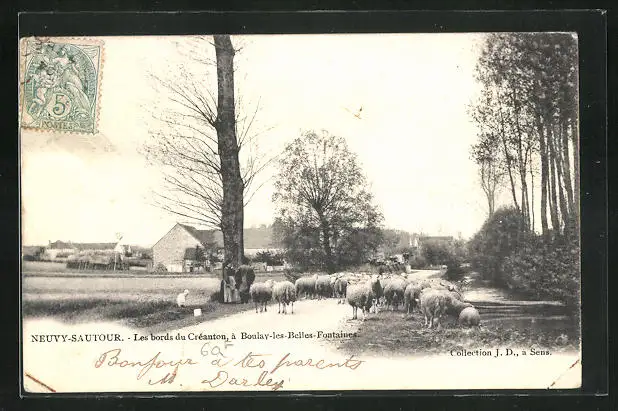 5
POSTES
NEUVY-SAUTOUR. - Les bords du Créanton, à Boulay-les-Belles-Fontaines.
Collection J. D., à Sens.
Bonjour à tes parents
M. Darley